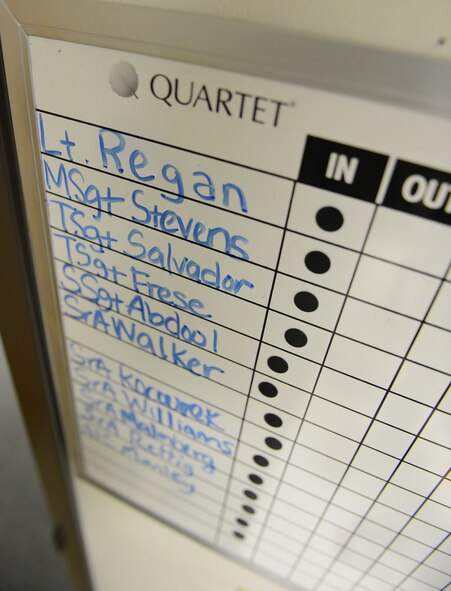 QUARTET
IN OUT
Lt. Regan
MSgt Stevens
TSgt Salvador
TSgt Frese
SSgt Abdool
SrA Walker
SrA
SrA Williams
SrA Malmberg
SrA Rettig
Manley